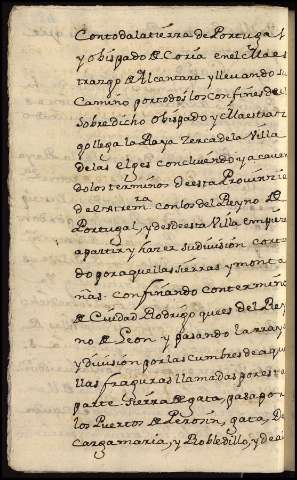 Con toda la tierra de Portugal
y obispado de Coria en el Maes
trazgo de Alcantara y llevando su
Camino por todos los confines de
sobre dicho obispado y Maestraz
go llega la Raya zerca de la Villa
de las elges concluendo ya
dolos términos de esta Provinzia
de estrem.ra con los del Reyno de
Portugal, y desde esta Villa empieza
a partir y hazer su division corta
do por aquellas sierras y monta
ñas. confinando con termino
de Ciudad Rodrigo que es del Rey
no de Leon y pasando la raya
y división por las cumbres de aque
llas fraguras llamadas por esta
parte. Sierra de gata, pasa por
los Puertos de Perosin, gata, De
cargamaria, y Robledillo, y de